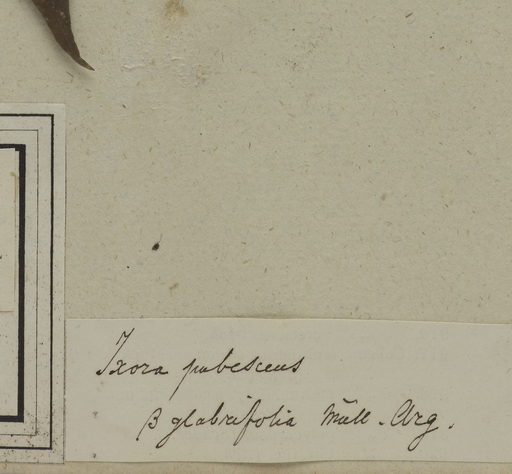 Ixora pubescens
β glabrifolia Müll-Arg.